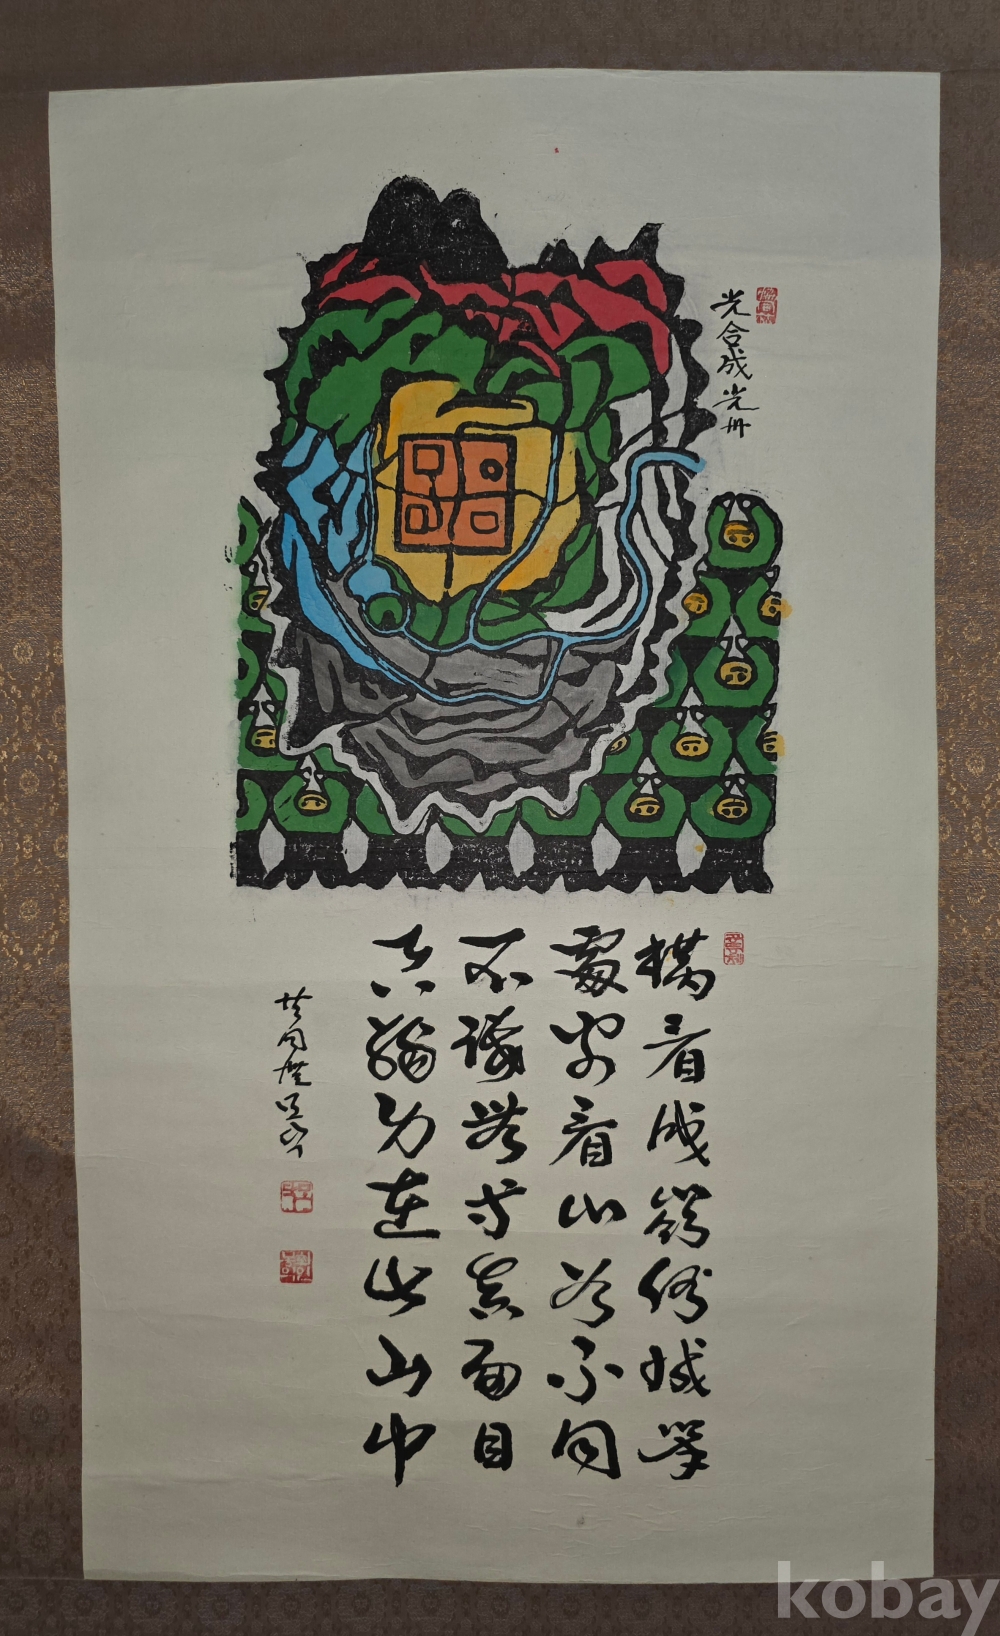 光合成光州
橫看成嶺側成峯
處處看山各不同
不識廬山真面目
只緣身在此山中
kobay